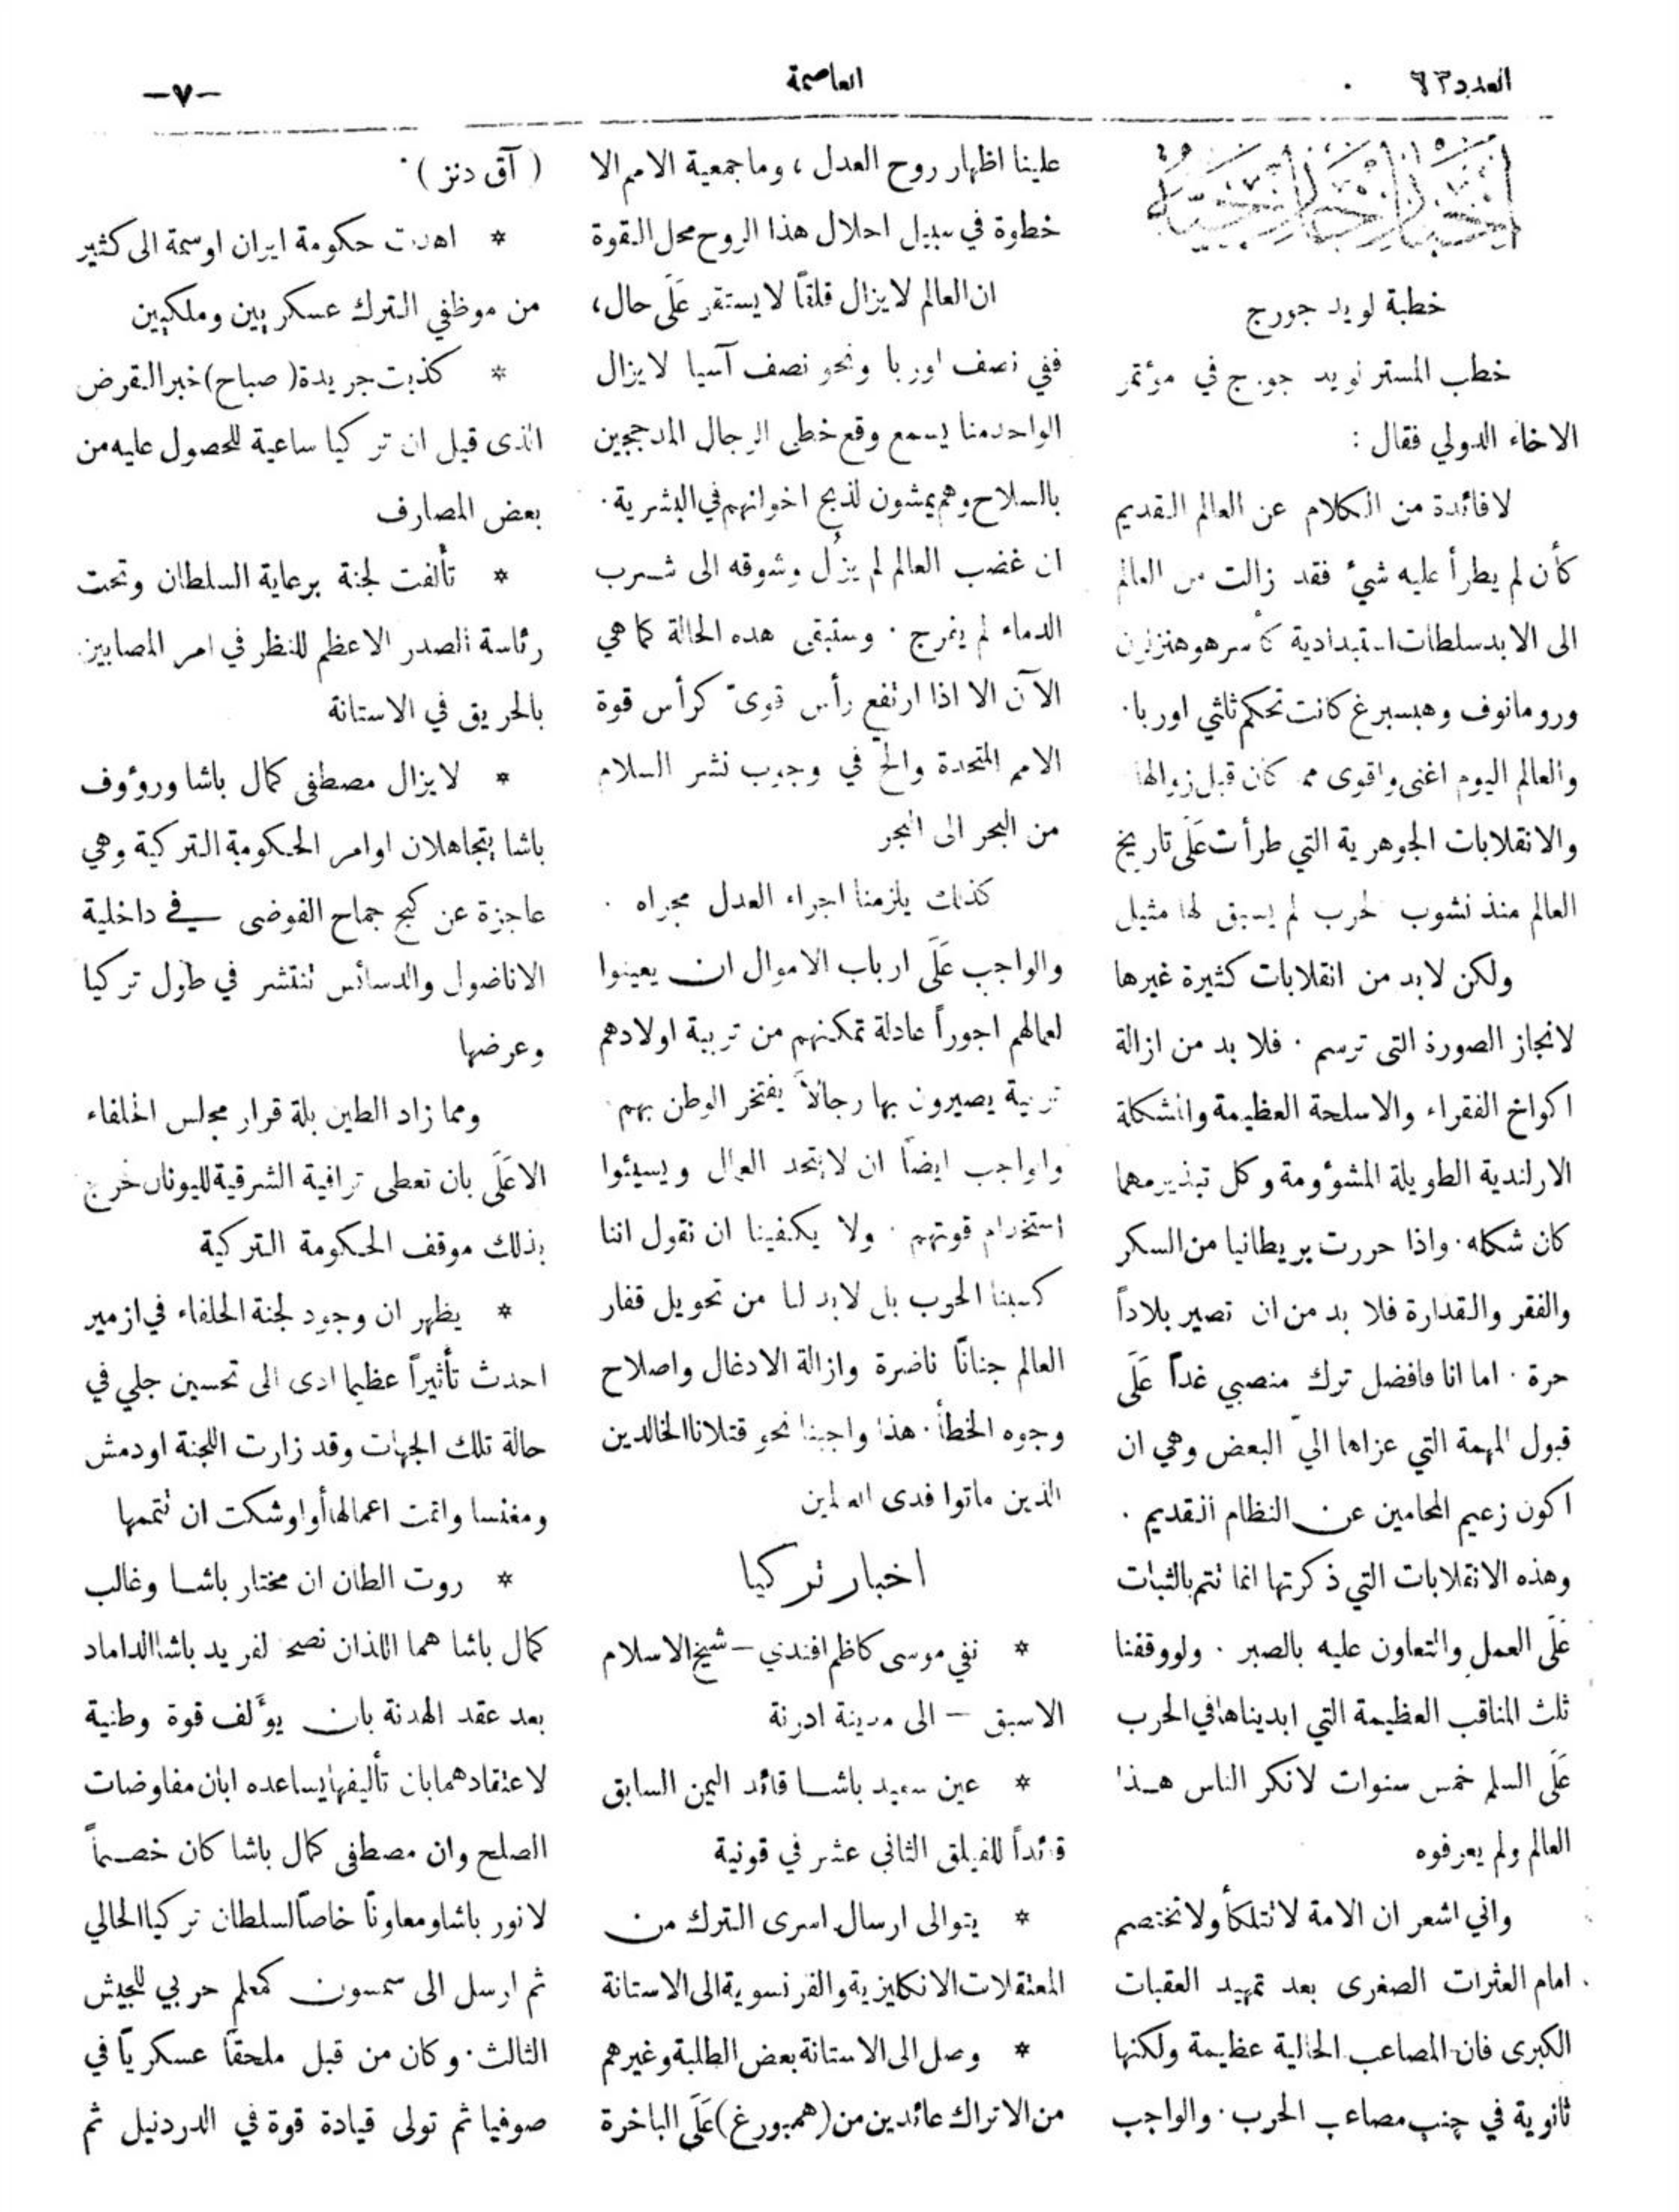 العدد ٦٣
العاصمة
—٧—
خطبة لويد جورج
خطب المستر لويد جورج في مؤتمر
الاخاء الدولي فقال :
لا فائدة من الكلام عن العالم القديم
كأن لم يطرأ عليه شيء فقد زالت من العالم
الى الابد سلطات استبدادية كأسر هوهنزلرن
ورومانوف وهبسبرغ كانت تحكم ثلثي اوربا٠
والعالم اليوم اغنى واقوى مما كان قبل زوالها
والانقلابات الجوهرية التي طرأت عَلَى تاريخ
العالم منذ نشوب الحرب لم يسبق لها مثيل
ولكن لابد من انقلابات كثيرة غيرها
لانجاز الصورة التى ترسم ٠ فلا بد من ازالة
اكواخ الفقراء والاسلحة العظيمة والمشكلة
الارلندية الطويلة المشؤومة وكل تبذير مهما
كان شكله٠ واذا حررت بريطانيا من السكر
والفقر والقذارة فلا بد من ان تصير بلاداً
حرة ٠ اما انا فافضل ترك منصبي غداً عَلَى
قبول المهمة التي عزاها اليّ البعض وهي ان
اكون زعيم المحامين عن النظام القديم ٠
وهذه الانقلابات التي ذكرتها انما تتم بالثبات
عَلَى العمل والتعاون عليه بالصبر ٠ ولو وقفنا
ثلث المناقب العظيمة التي ابديناها في الحرب
عَلَى السلم خمس سنوات لانكر الناس هذا
العالم ولم يعرفوه
واني اشعر ان الامة لا تتلكأ ولا تختصم
امام العثرات الصغرى بعد تمهيد العقبات
الكبرى فان المصاعب الحالية عظيمة ولكنها
ثانوية في جنب مصاعب الحرب٠ والواجب
علينا اظهار روح العدل ، وما جمعية الامم الا
خطوة في سبيل احلال هذا الروح محل القوة
ان العالم لا يزال قلقاً لا يستقر عَلَى حال،
ففي نصف اوربا ونحو نصف آسيا لا يزال
الواحد منا يسمع وقع خطى الرجال المدججين
بالسلاح وهم يمشون لذبح اخوانهم في البشرية٠
ان غضب العالم لم يزُل وشوقه الى شرب
الدماء لم ينمرج ٠ وستبقى هذه الحالة كما هي
الآن الا اذا ارتفع رأس قوىّ كرأس قوة
الامم المتحدة والحّ في وجوب نشر السلام
من البحر الى البحر
كذلك يلزمنا اجراء العدل مجراه ٠
والواجب عَلَى ارباب الاموال ان يعينوا
لعمالهم اجوراً عادلة تمكنهم من تربية اولادهم
تربية يصيرون بها رجالاً يفتخر الوطن بهم
والواجب ايضاً ان لا يتحد العمال ويسيئوا
استخدام قوتهم ٠ ولا يكفينا ان نقول اننا
كسبنا الحرب بل لابد لنا من تحويل قفار
العالم جناناً ناضرة وازالة الادغال واصلاح
وجوه الخطأ٠ هذا واجبنا نحو قتلانا الخالدين
الذين ماتوا فدى العالمين
اخبار تركيا
* نفي موسى كاظم افندي — شيخ الاسلام
الاسبق — الى مدينة ادرنة
* عين سعيد باشا قائد اليمن السابق
قائداً للفيلق الثاني عشر في قونية
* يتوالى ارسال اسرى الترك من
المعتقلات الانكليزية والفرنسوية الى الاستانة
* وصل الى الاستانة بعض الطلبة وغيرهم
من الاتراك عائدين من (همبورغ) عَلَى الباخرة
( آق دنز )٠
* اهدت حكومة ايران اوسمة الى كثير
من موظفي الترك عسكريين وملكيين
* كذبت جريدة ( صباح ) خبر القرض
الذى قيل ان تركيا ساعية للحصول عليه من
بعض المصارف
* تألفت لجنة برعاية السلطان وتحت
رئاسة الصدر الاعظم للنظر في امر المصابين
بالحريق في الاستانة
* لا يزال مصطفى كمال باشا ورؤوف
باشا يتجاهلان اوامر الحكومة التركية وهي
عاجزة عن كبح جماح الفوضى في داخلية
الاناضول والدسائس تنتشر في طول تركيا
وعرضها
ومما زاد الطين بلة قرار مجلس الحلفاء
الاعَلَى بان تعطى تراقية الشرقية لليونان فحرج
بذلك موقف الحكومة التركية
* يظهر ان وجود لجنة الحلفاء في ازمير
احدث تأثيراً عظيما ادى الى تحسين جلي في
حالة تلك الجهات وقد زارت اللجنة اودمش
ومغنسا واتمت اعمالها أو اوشكت ان تتممها
* روت الطان ان مختار باشا وغالب
كمال باشا هما اللذان نصحا لفريد باشا الداماد
بعد عقد الهدنة بان يؤلف قوة وطنية
لاعتقادهما بان تأليفها يساعده ابان مفاوضات
الصلح وان مصطفى كمال باشا كان خصماً
لانور باشا ومعاوناً خاصاً لسلطان تركيا الحالي
ثم ارسل الى سمسون كمعلم حربي للجيش
الثالث٠ وكان من قبل ملحقاً عسكرياً في
صوفيا ثم تولى قيادة قوة في الدردنيل ثم